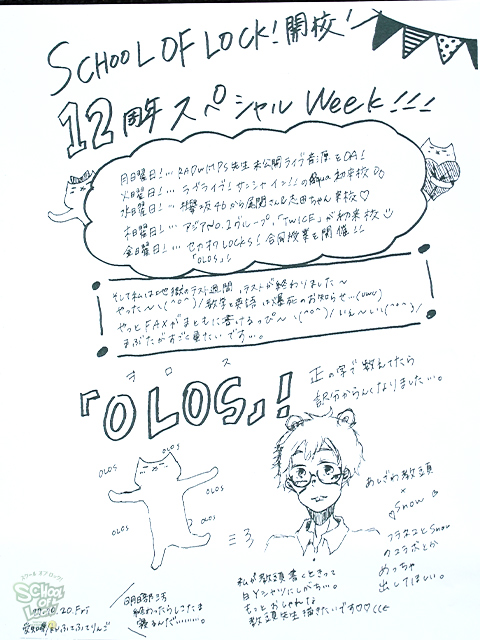 SCHOOL OF LOCK! 開校!
12周年 スペシャル Week!!!
月曜日!… RADWIMPS先生 未公開ライブ音源をOA!
火曜日!… ラブライブ!サンシャイン!!の 初来校
水曜日!… 欅坂46から 志田ちゃん来校♡
木曜日!… アジアNo.1グループ、「TWICE」が初来校
金曜日!… セカオワLOCKS! 合同授業を開催!!
「OLOS」!
そして私は地獄のテスト週間、テストが終わりました〜
やった〜\(^o^)/ 数学と英語は爆死のお知らせ…(uwu)
やっとFAXがまともに書けるっぴ〜\(^o^)/ いぇ〜い\(^o^)/
まぶたがすごく重たいです…。
オロス
「OLOS」!
正の字で数えてたら
途分からんくなりました…。
OLOS
OLOS
OLOS
OLOS
OLOS
OLOS
あしざわ教頭
×
Snow
とSnow
のコラボとか
めっちゃ
出してほしい。
スクール オブ ロック!
SCHOOL OF LOCK!
20.Fri
愛知県
終わったらしこたま
寝るんだ…
私が教頭書くときって
白Yシャツにしがち…。
もっとおしゃれな
教頭先生描きたいです♡♡